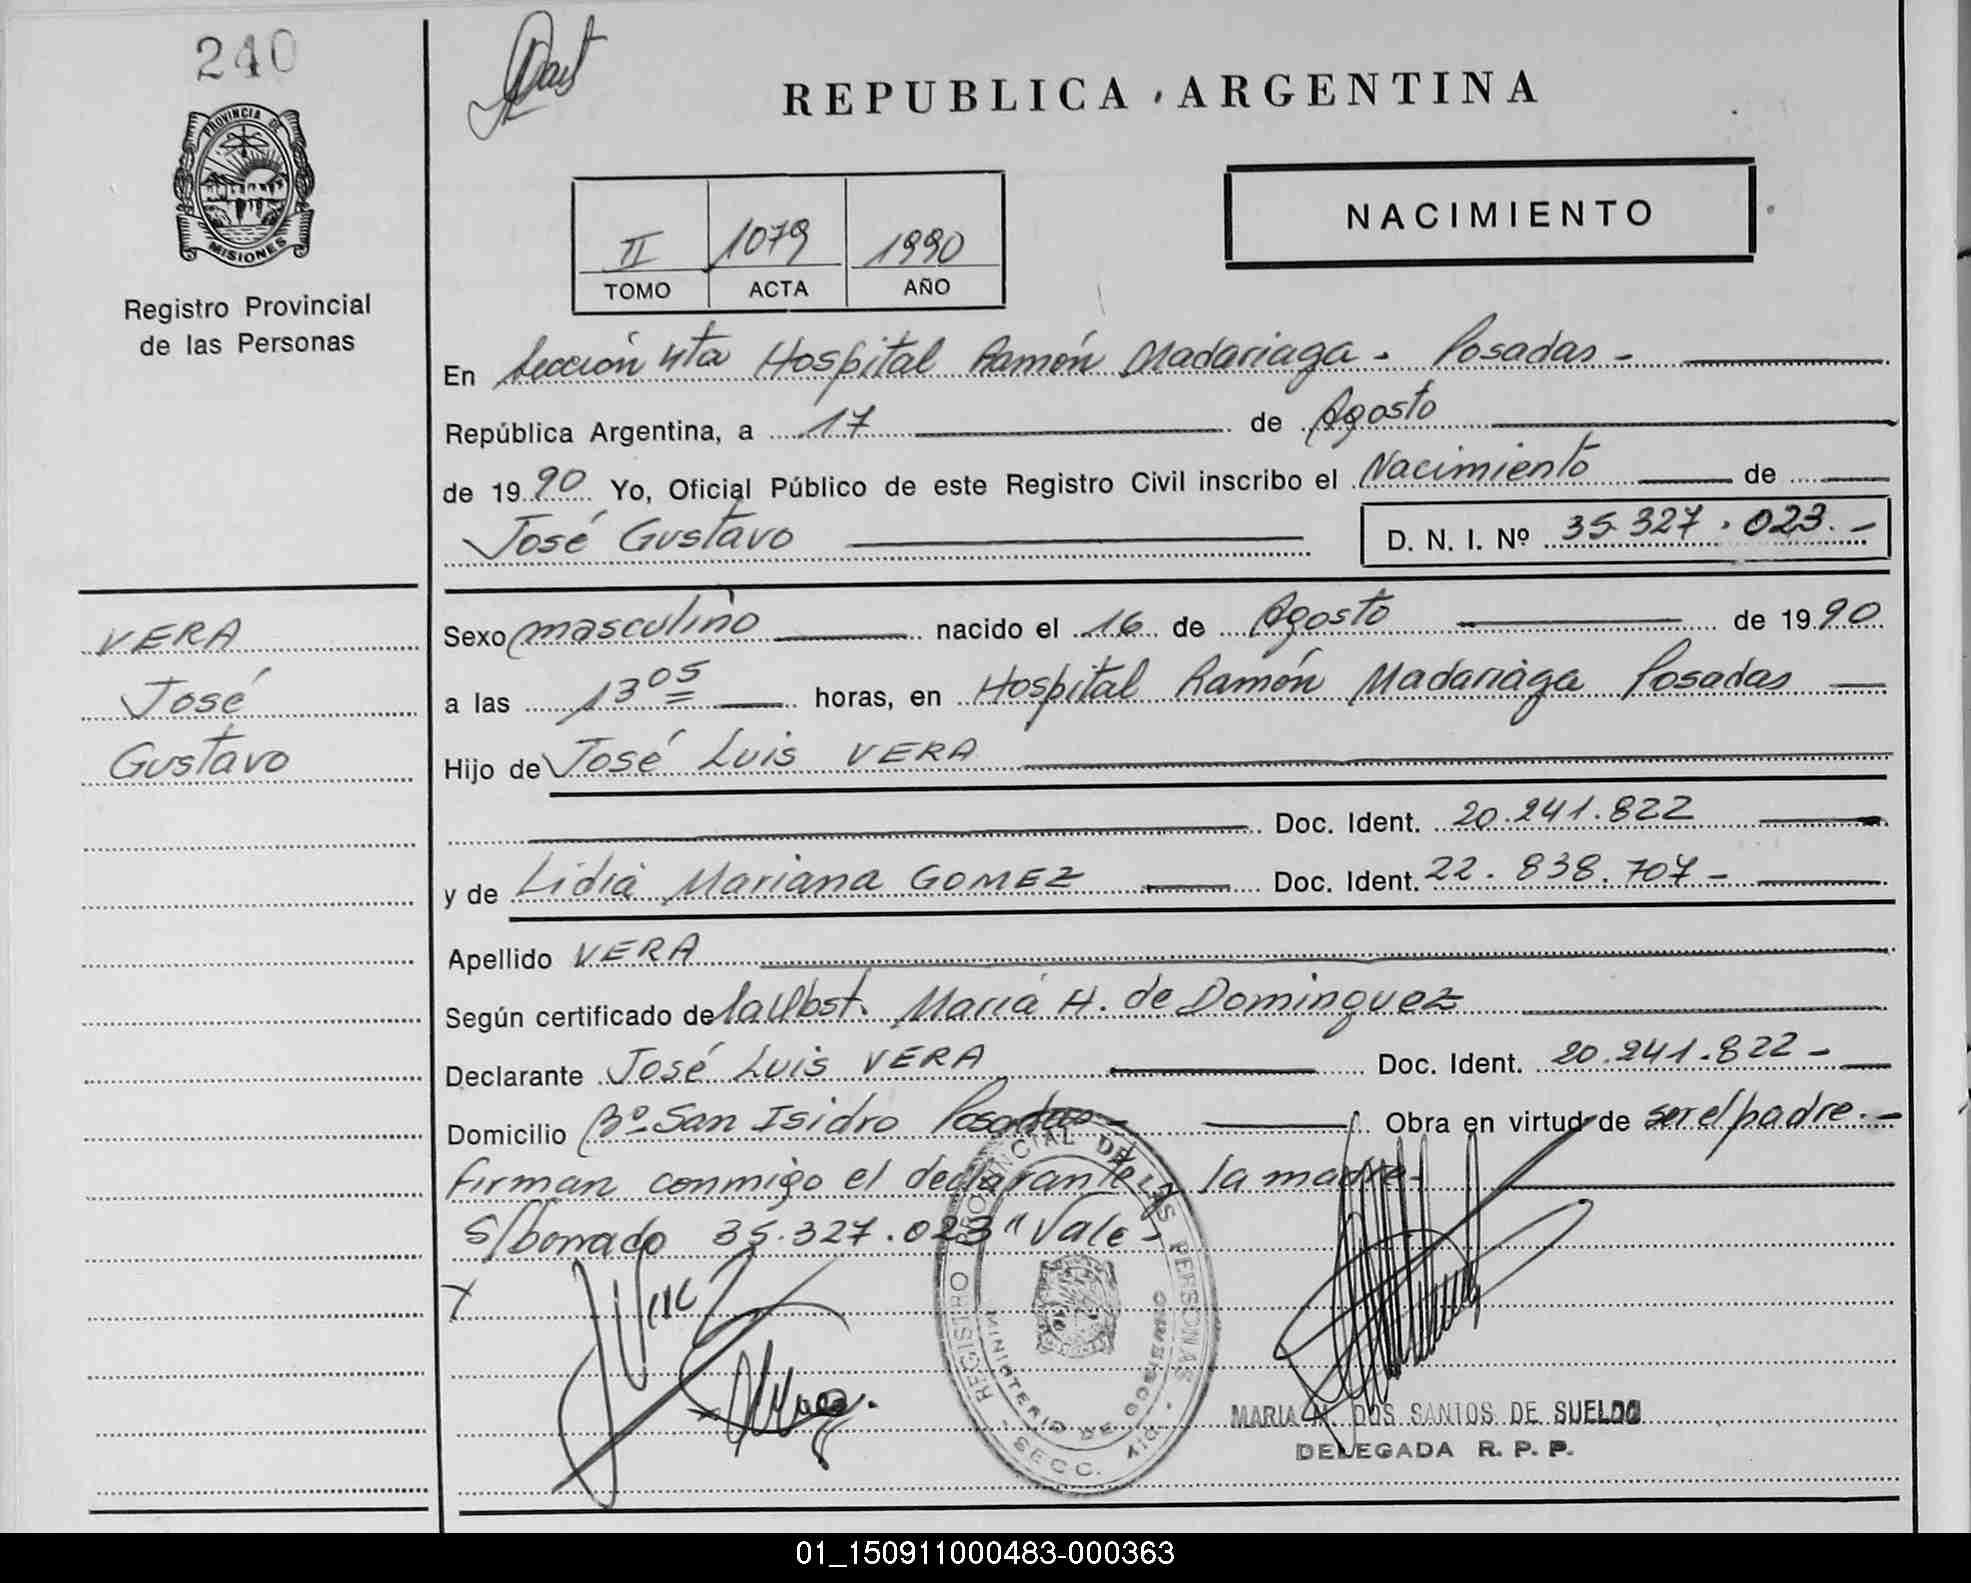 240
PROVINCIA DE
MISIONES
Registro Provincial
de las Personas
VERA
José
Gustavo
REPUBLICA ARGENTINA
II 1079 1990
TOMO ACTA AÑO
NACIMIENTO
En Sección 4ta Hospital Ramón Madariaga - Posadas -
República Argentina, a 17 de Agosto
de 1990 Yo, Oficial Público de este Registro Civil inscribo el Nacimiento de
José Gustavo D. N. I. Nº 35.327.023.-
Sexo masculino nacido el 16 de Agosto de 1990
a las 13 05 horas, en Hospital Ramón Madariaga Posadas
Hijo de José Luis VERA
Doc. Ident. 20.241.822
y de Lidia Mariana GOMEZ Doc. Ident. 22.838.707-
Apellido VERA
Según certificado de la Obst. María H. de Dominguez
Declarante José Luis VERA Doc. Ident. 20.241.822-
Domicilio Bº San Isidro Posadas - Obra en virtud de ser el padre.-
Firman conmigo el declarante y la madre-
S/borrado 35.327.023 "Vale-
REGISTRO PROVINCIAL DE LAS PERSONAS
MINISTERIO DE GOBIERNO
SECC.
MARIA DOS SANTOS DE SUELDO
DELEGADA R. P. P.
01_150911000483-000363